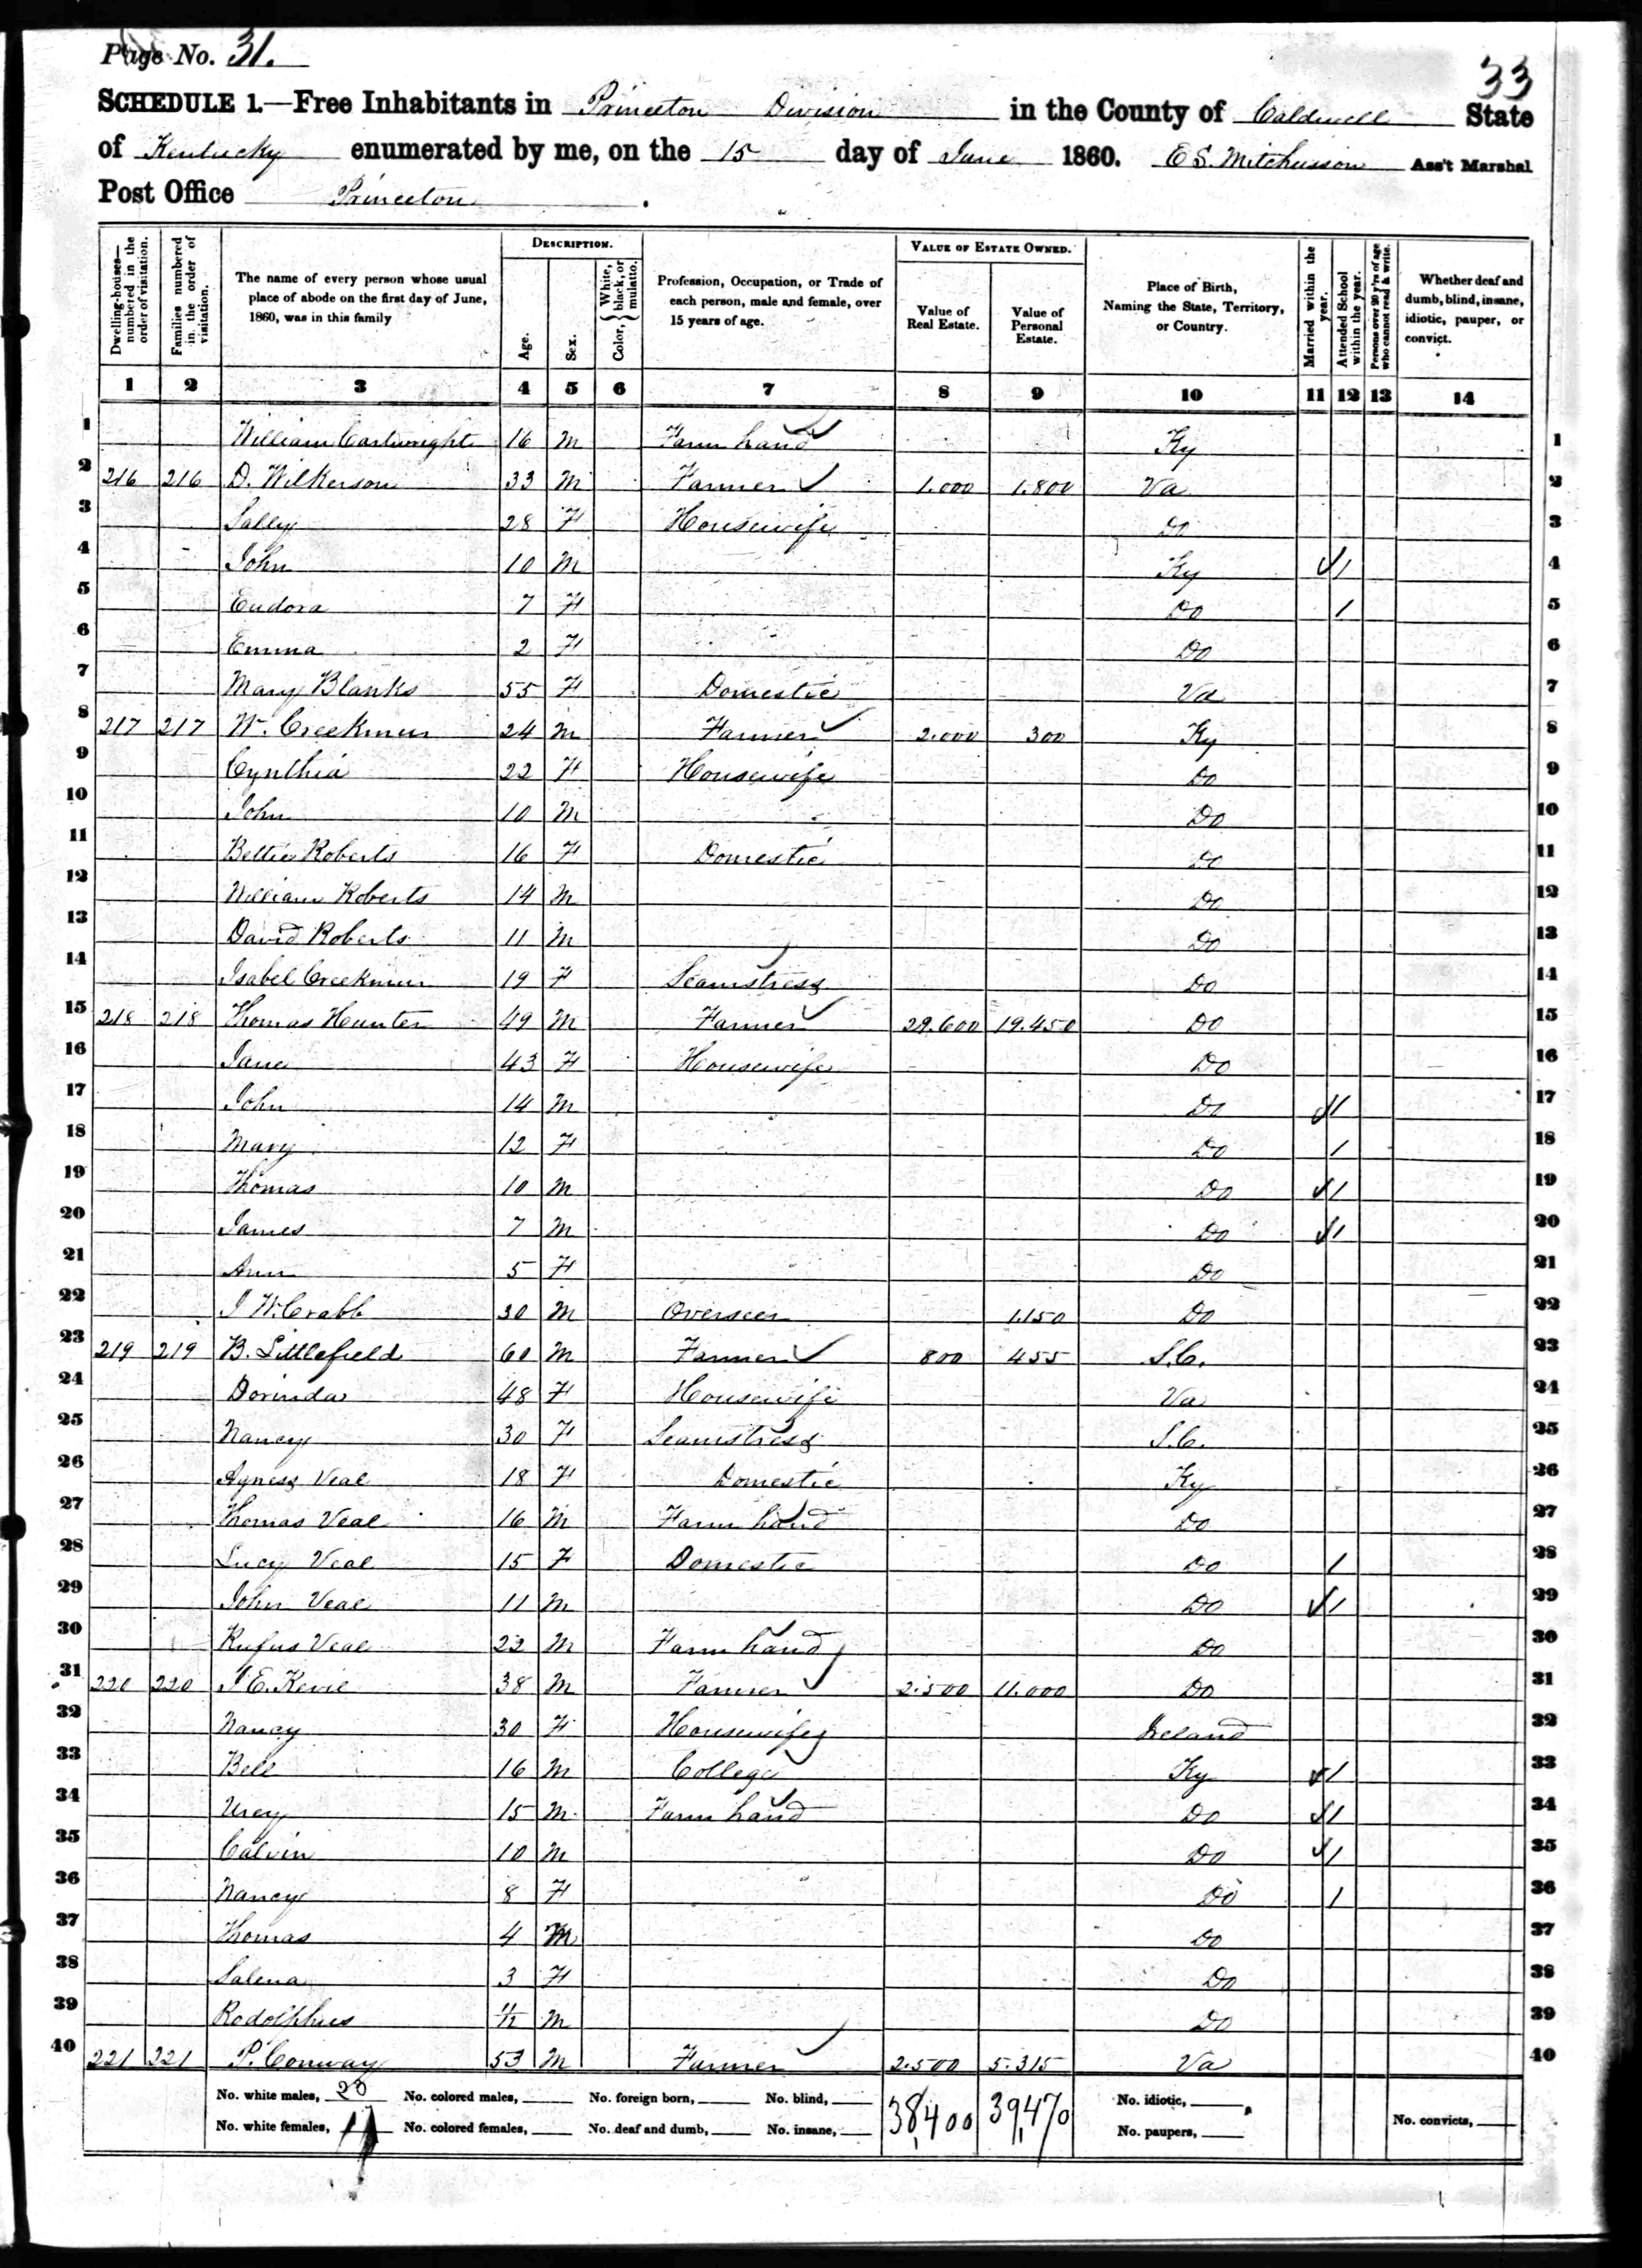 Page No. 31.
33
SCHEDULE 1.—Free Inhabitants in Princeton Division in the County of Caldwell State
of Kentucky enumerated by me, on the 15 day of June 1860. E S. Mitchusson Ass't Marshal
Post Office Princeton.
Dwelling-houses—numbered in the order of visitation.
Families numbered in the order of visitation.
The name of every person whose usual place of abode on the first day of June, 1860, was in this family
DESCRIPTION.
Age.
Sex.
Color, { White, black, or mulatto.
Profession, Occupation, or Trade of each person, male and female, over 15 years of age.
VALUE OF ESTATE OWNED.
Value of Real Estate.
Value of Personal Estate.
Place of Birth, Naming the State, Territory, or Country.
Married within the year.
Attended School within the year.
Persons over 20 y'rs of age who cannot read & write.
Whether deaf and dumb, blind, insane, idiotic, pauper, or convict.
1 2 3 4 5 6 7 8 9 10 11 12 13 14
1 William Cartwright 16 M Farm hand Ky 1
2 216 216 D. Wilkerson 33 M Farmer 1.000 1.800 Va 2
3 Sally 28 F Housewife Do 3
4 John 10 M Ky 1 4
5 Eudora 7 F Do 1 5
6 Emma 2 F Do 6
7 Mary Blanks 55 F Domestic Va 7
8 217 217 Wm. Creekmur 24 M Farmer 2.000 300 Ky 8
9 Cynthia 22 F Housewife Do 9
10 John 10 M Do 10
11 Bettie Roberts 16 F Domestic Do 11
12 William Roberts 14 M Do 12
13 David Roberts 11 M Do 13
14 Isabel Creekmur 19 F Seamstress Do 14
15 218 218 Thomas Hunter 49 M Farmer 29.600 19.450 Do 15
16 Jane 43 F Housewife Do 16
17 John 14 M Do 1 17
18 Mary 12 F Do 1 18
19 Thomas 10 M Do 1 19
20 James 7 M Do 1 20
21 Ann 5 F Do 21
22 J W. Crabb 30 M Overseer 1.150 Do 22
23 219 219 B. Littlefield 60 M Farmer 800 455 S.C. 23
24 Dorinda 48 F Housewife Va 24
25 Nancy 30 F Seamstress S.C. 25
26 Agness Veal 18 F Domestic Ky 26
27 Thomas Veal 16 M Farm hand Do 27
28 Lucy Veal 15 F Domestic Do 1 28
29 John Veal 11 M Do 1 29
30 Rufus Veal 22 M Farm hand Do 30
31 220 220 J E. Kevil 38 M Farmer 2.500 11.000 Do 31
32 Nancy 30 F Housewife Ireland 32
33 Bell 16 M College Ky 1 33
34 Urey 15 M Farm hand Do 1 34
35 Calvin 10 M Do 1 35
36 Nancy 8 F Do 1 36
37 Thomas 4 M Do 37
38 Salena 3 F Do 38
39 Rodolphus M Do 39
40 221 221 P. Conway 53 M Farmer 2.500 5.315 Va 40
No. white males, 20 No. colored males, No. foreign born, No. blind, 38,400 39,470 No. idiotic,
No. white females, No. colored females, No. deaf and dumb, No. insane, No. paupers, No. convicts,